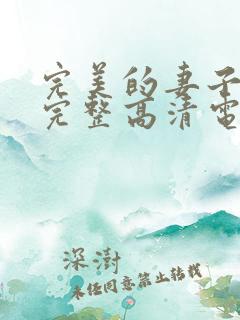 完美的妻子
完整高清电
深澍
未经同意禁止转载